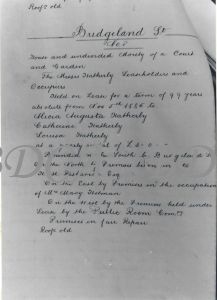 Roofs old
Bridgeland St
House and undivided moiety of a Court
and Garden
The Misses Hatherly Leaseholders and
Occupiers
Held on Lease for a term of 99 years
absolute from Nov 5th 1886 to
Alicia Augusta Hatherly
Catherine Hatherly
Louisa Hatherly
at a yearly rent of
Bounded on the South by Bridgeland St
On the North by Premises
Esq
On the East by Premises in the occupation
of Mrs Mary Holman
On the West by the Premises held under
Lease by the Public Room Comy
Premises in fair Repair
Roofs old